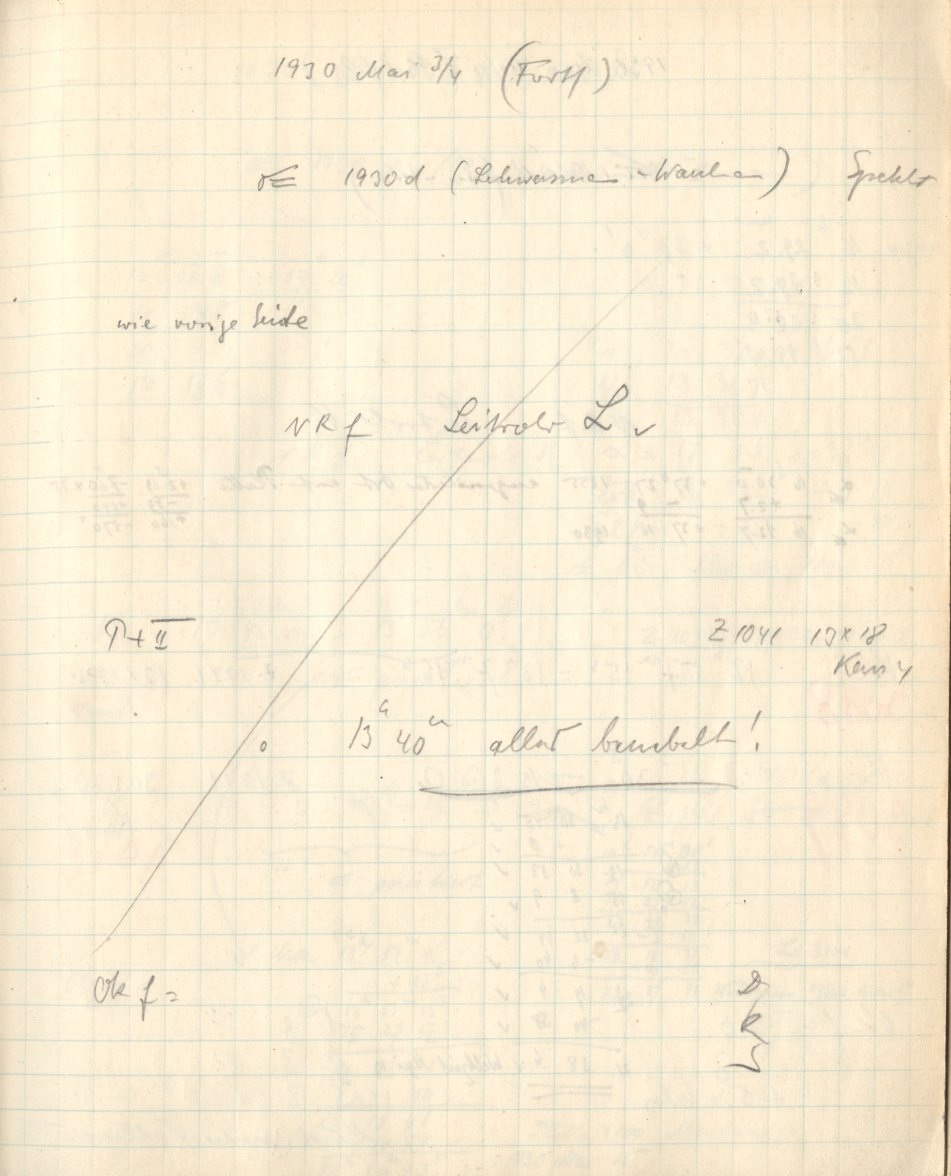 1930 Mai 3/4 (Forts)
☄ 1930d (Schwassmann-Wachmann) Spektr
wie vorige Seite
NRf Leitrohr L
P + II
Z 1041 13 x 18
13h 40m alles bewölkt!
Ok f =
D
R